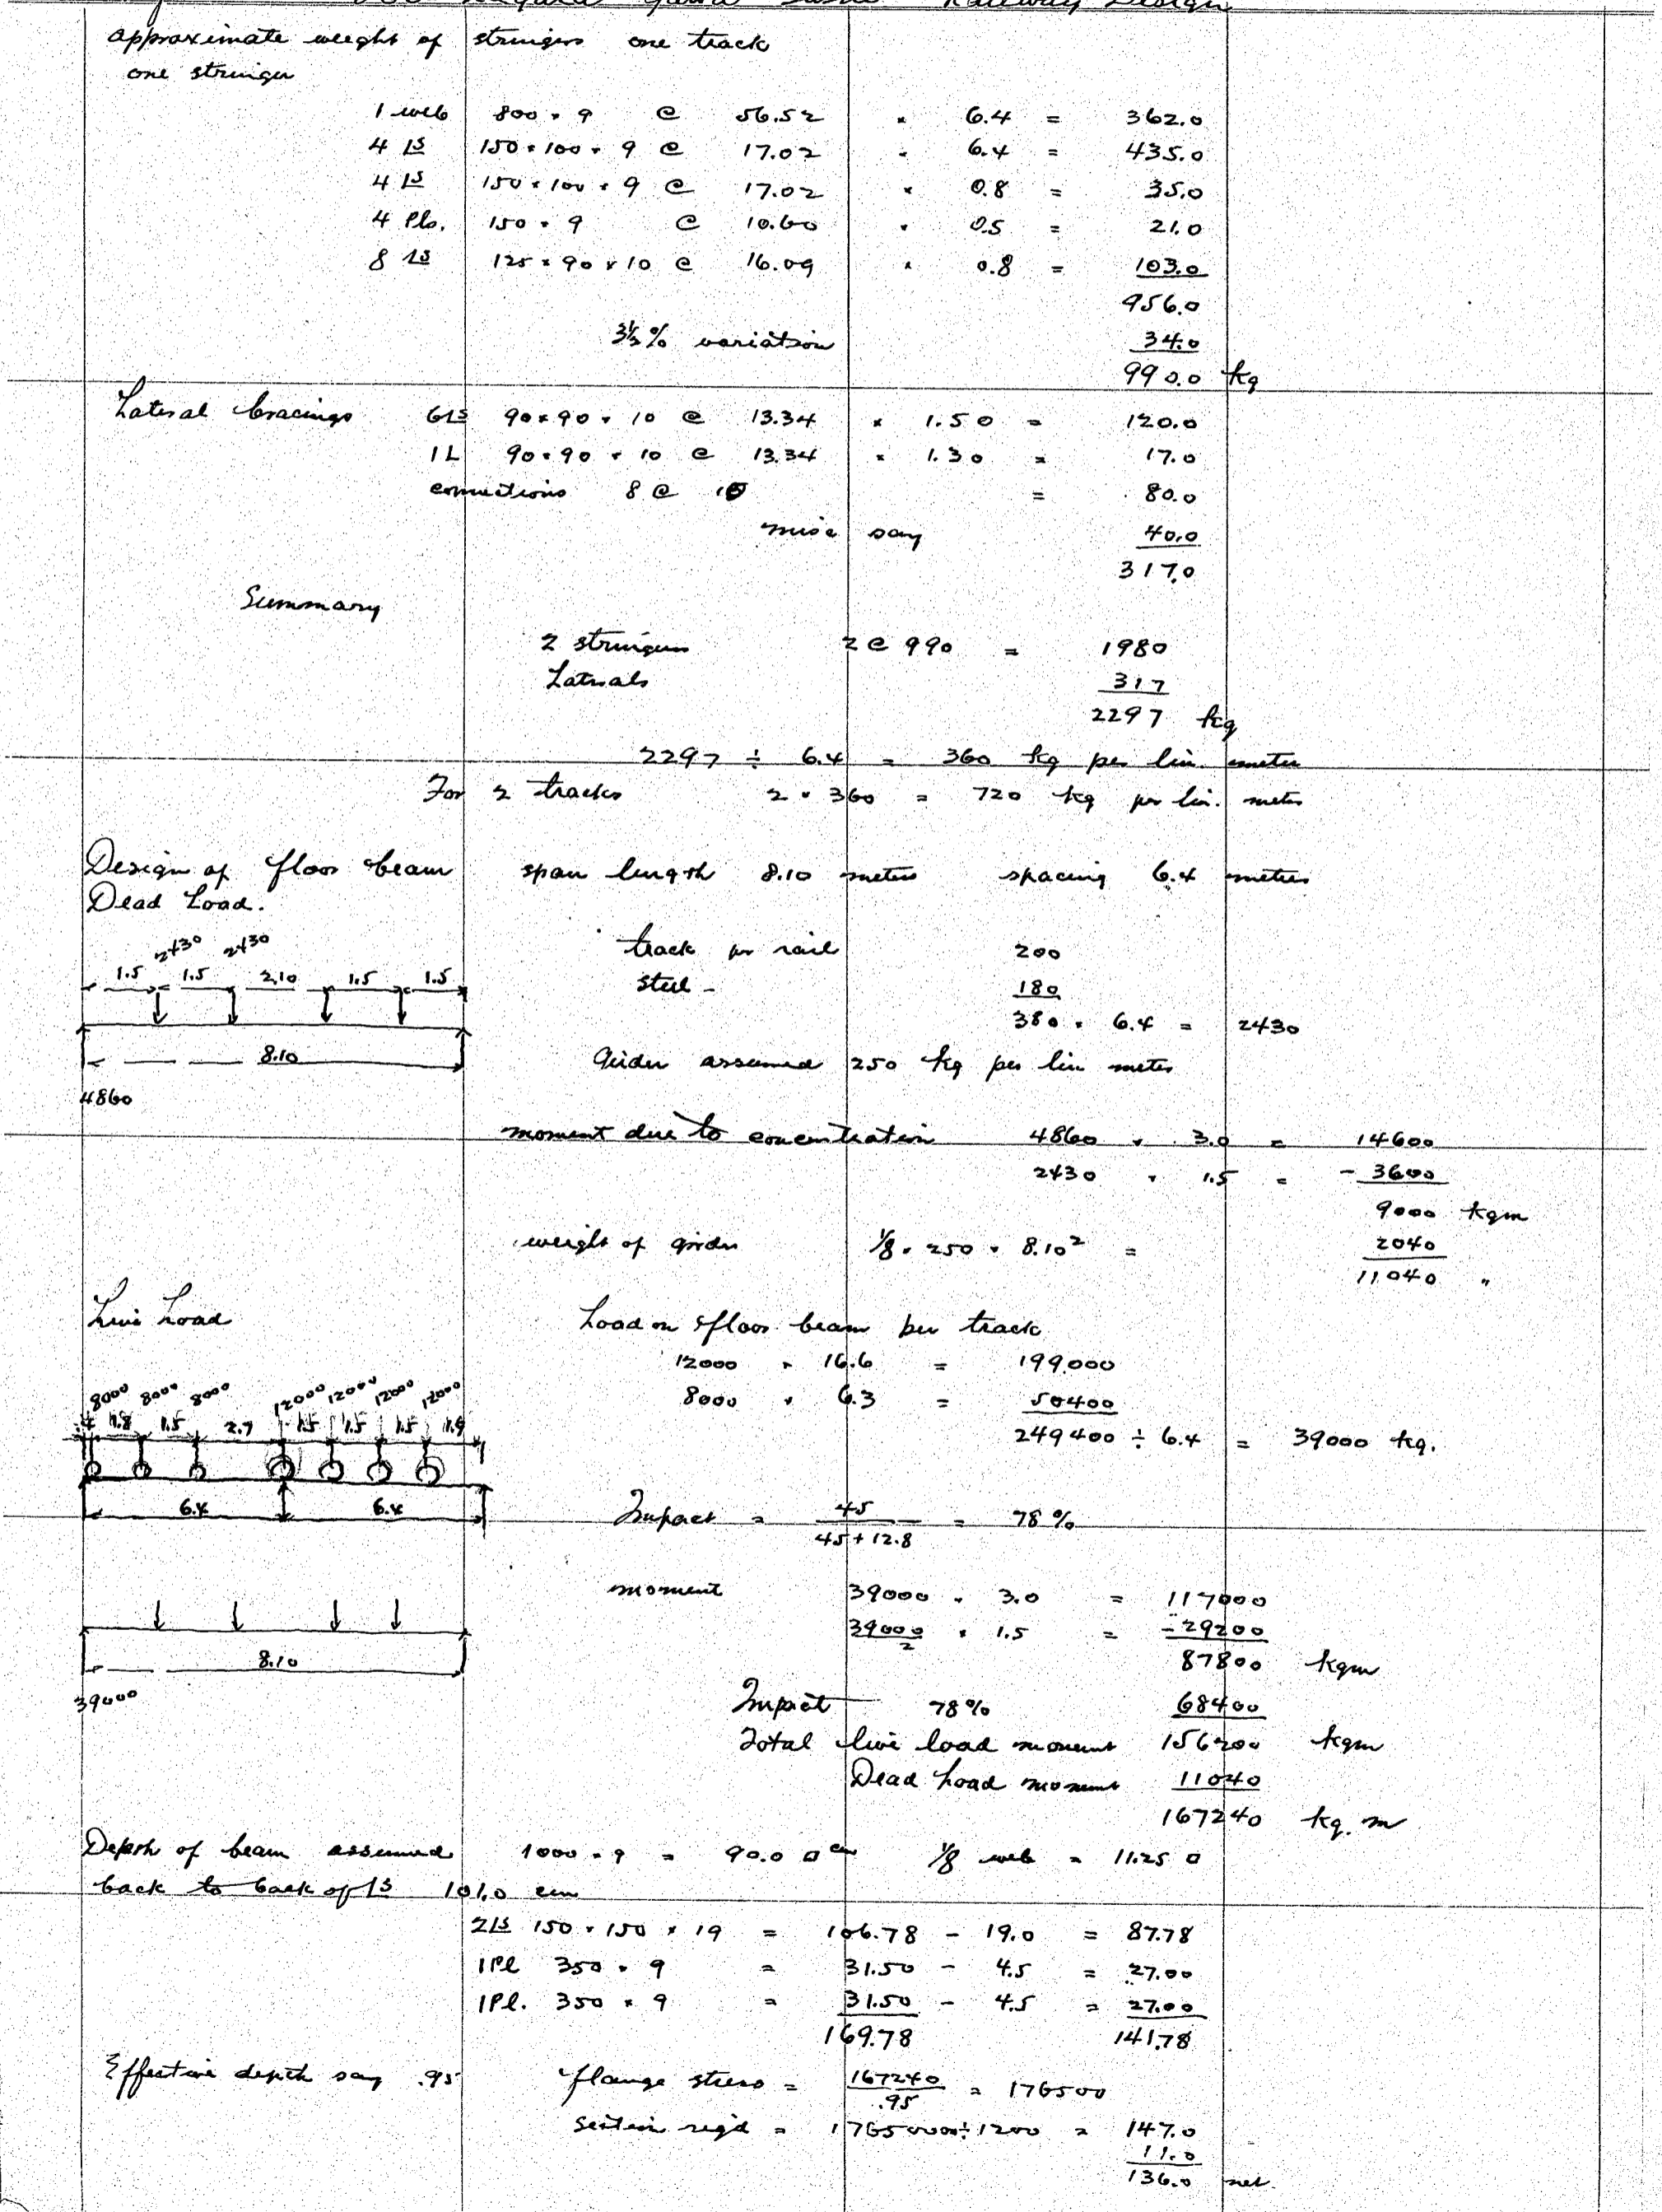 Railway Design
approximate weight of stringers one track
one stringer
1 web 800 × 9 @ 56.52 × 6.4 = 362.0
4 Ls 150 × 100 × 9 @ 17.02 × 6.4 = 435.0
4 Ls 150 × 100 × 9 @ 17.02 × 0.8 = 35.0
4 Pls. 150 × 9 @ 10.60 × 0.5 = 21.0
8 Ls 125 × 90 × 10 @ 16.09 × 0.8 = 103.0
956.0
3½% variation 34.0
990.0 kg
Lateral bracings 6 Ls 90 × 90 × 10 @ 13.34 × 1.50 = 120.0
1 L 90 × 90 × 10 @ 13.34 × 1.30 = 17.0
connections 8 @ 10 = 80.0
misc say 40.0
317.0
Summary
2 stringers 2 @ 990 = 1980
Laterals 317
2297 kg
2297 ÷ 6.4 = 360 kg per lin. meter
For 2 tracks 2 × 360 = 720 kg per lin. meter
Design of floor beam span length 8.10 meters spacing 6.4 meters
Dead Load.
2430 2430
1.5 1.5 2.10 1.5 1.5
8.10
4860
track per rail 200
steel - 180
380 × 6.4 = 2430
Girder assumed 250 kg per lin meter
moment due to concentration 4860 × 3.0 = 14600
2430 × 1.5 = - 3600
9000 kgm
weight of girder 1/8 × 250 × 8.10² = 2040
11040 "
Live Load
Load on floor beam per track
12000 × 16.6 = 199000
8000 × 6.3 = 50400
249400 ÷ 6.4 = 39000 kg.
8000 8000 8000 12000 12000 12000 12000
.4 1.8 1.5 2.7 1.5 1.5 1.5 1.9
6.4 6.4
Impact = 45 / 45 + 12.8 = 78 %
moment 39000 × 3.0 = 117000
39000/2 × 1.5 = - 29200
87800 kgm
8.10
39000
Impact 78% 68400
Total live load moment 156200 kgm
Dead Load moment 11040
167240 kg. m
Depth of beam assumed 1000 × 9 = 90.0 □ cm 1/8 web = 11.25 □
back to back of Ls 101.0 cm
2 Ls 150 × 150 × 19 = 106.78 - 19.0 = 87.78
1 Pl 350 × 9 = 31.50 - 4.5 = 27.00
1 Pl. 350 × 9 = 31.50 - 4.5 = 27.00
169.78 141.78
Effective depth say .95 flange stress = 167240 / .95 = 176500
section req'd = 176500 ÷ 1200 = 147.0
11.0
136.0 net